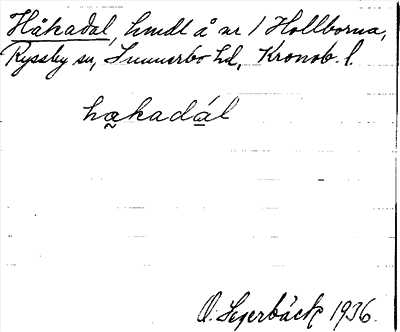 Håkadal, hmdl å nr 1 Hollborna,
Ryssby sn, Sunnerbo hd, Kronob. l.
hakadál
O. Segerbäck 1936.